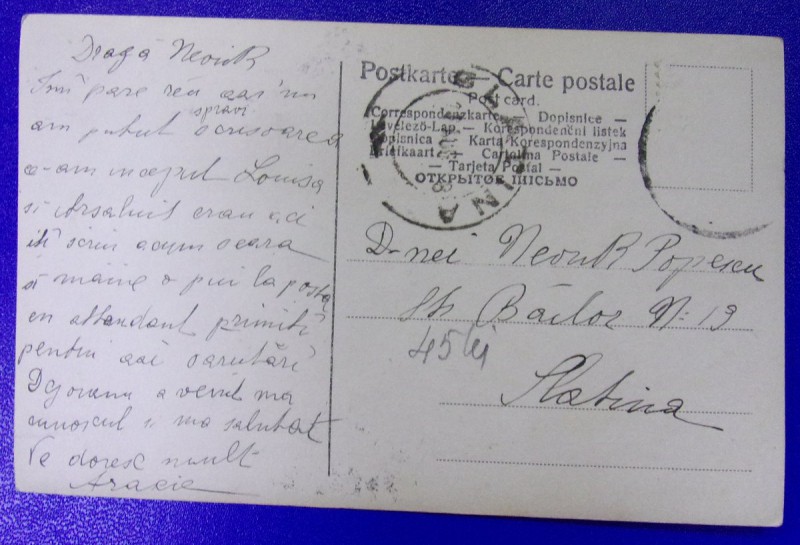 Dragă
Îmi pare rău că n'am
sprav
am putut scrisoarea
ce-am început Louisa
si erau aci
iți scriu acum seara
si maine o pui la posta
en attendant primiti
pentru sarutări
a venit ma
cunoscut si ma salutat
Te doresc mult
Aracie
Postkarte — Carte postale
Post card.
Correspondenzkarte — Dopisnice —
Levelező-Lap — Korespondenčni listek
Dopisnica — Karta Korespondenzyjna
Briefkaart — Cartolina Postale —
— Tarjeta Postal —
ОТКРЫТОЕ ПИСЬМО
SLATINA
D-nei Popescu
Str Băilor N: 19
45 lei
Slatina